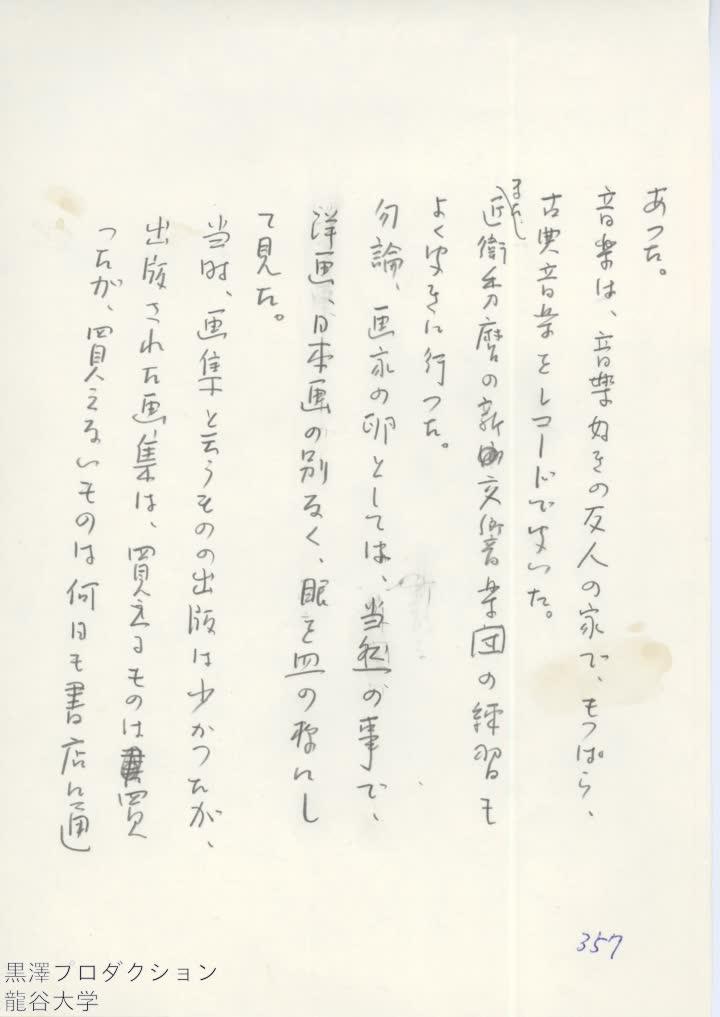 あつた。
音楽は、音楽好きの友人の家で、もつぱら、
古典音楽をレコードで聞いた。
また、
近衛秀麿の新交響音楽団の練習も
よく聞きに行つた。
勿論、画家の卵としては、当然の事で、
洋画、日本画の別なく、眼を皿の様にし
て見た。
当時、画集と云うものの出版は少かつたが、
出版された画集は、買えるものは買
つたが、買えないものは何日も書店に通
357
黒澤プロダクション
龍谷大学